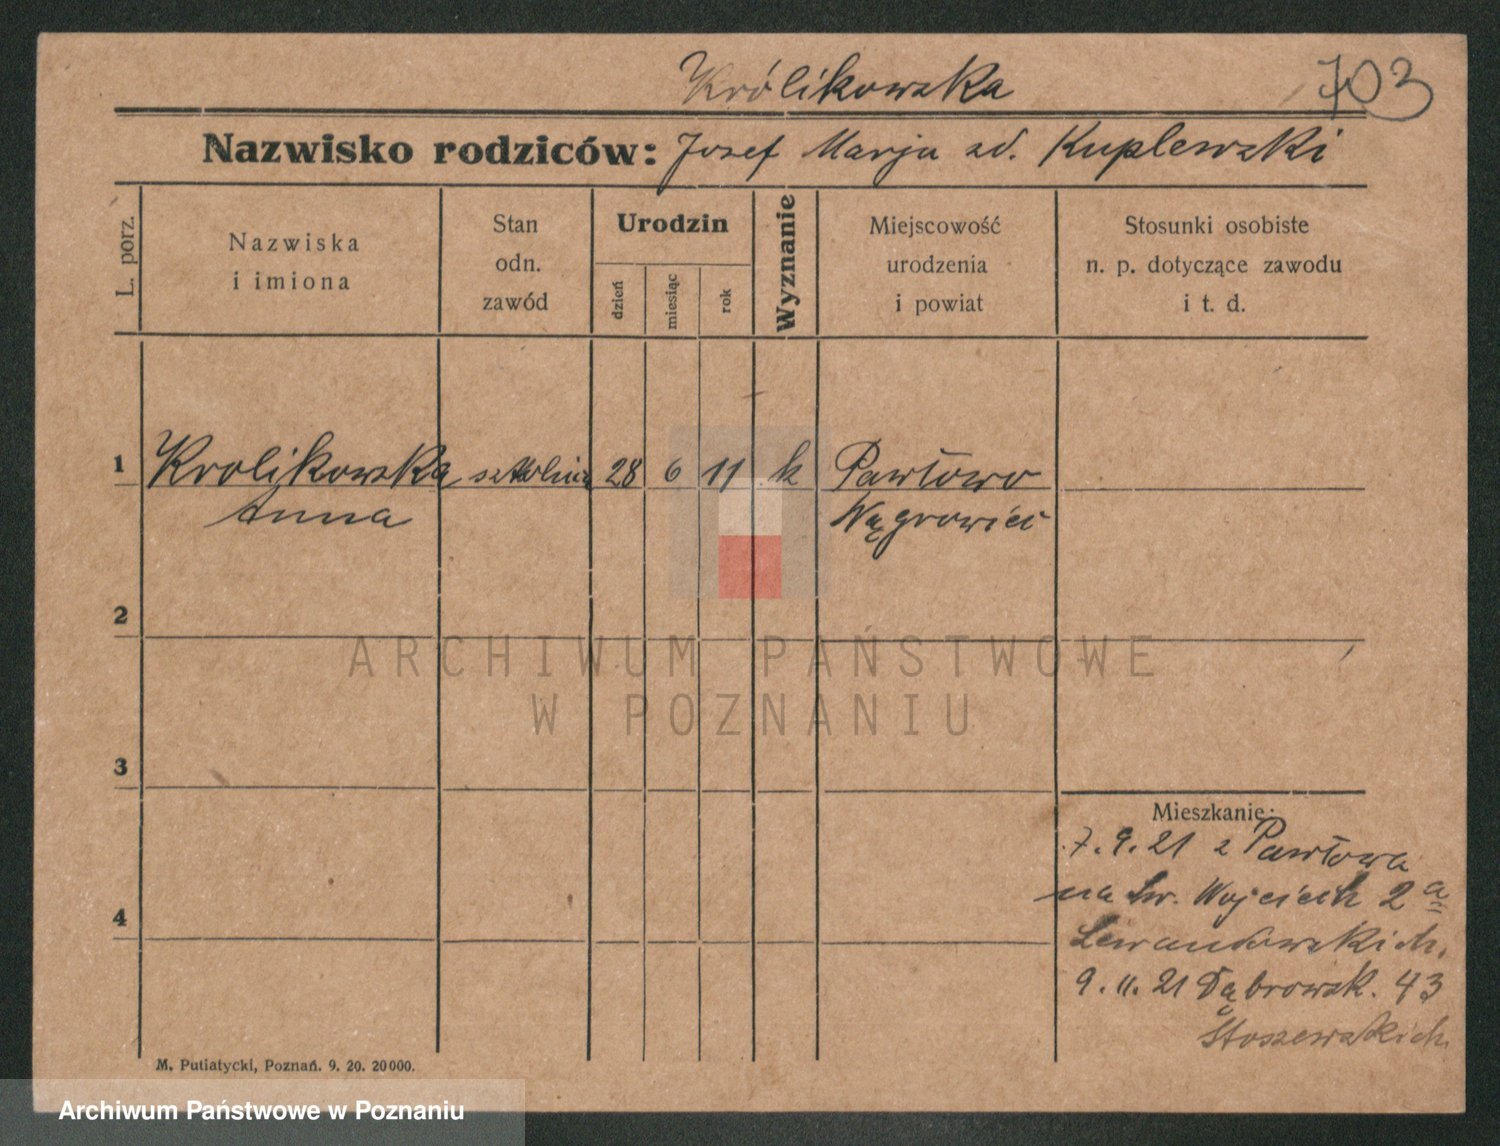 Królikowska 703
Nazwisko rodziców: Josef Marja zd. Kuplewski
L. porz.
Nazwiska
i imiona
Stan
odn.
zawód
Urodzin
dzień
miesiąc
rok
Wyznanie
Miejscowość
urodzenia
i powiat
Stosunki osobiste
n. p. dotyczące zawodu
i t. d.
1 Krolikowska 28 6 11 k Pawłowo
Anna Wągrowiec
2
ARCHIWUM PAŃSTWOWE
W POZNANIU
3
Mieszkanie:
7.9.21 z Pawłowa
na św. Wojciech 2a
4
Lewandowskich.
9.11.21 Dąbrowsk. 43
Stoszewskich
M. Putiatycki, Poznań. 9. 20. 20000.
Archiwum Państwowe w Poznaniu